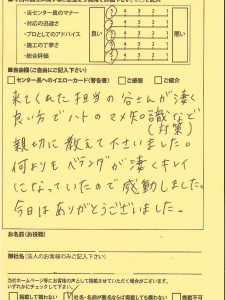 ・当センター長のマナー
・対応の迅速さ
・プロとしてのアドバイス
・施工の丁寧さ
・総合評価
良い
悪い
5 4 3 2 1
5 4 3 2 1
5 4 3 2 1
5 4 3 2 1
5 4 3 2 1
■自由欄(ご自由にご記入下さい)
□センター長へのイエローカード(警告書) □ご感想 □ご紹介
来てくれた担当の谷さんが凄く
良い方でハトのマメ知識など
(対策)
親切に教えて下さいました。
何よりもベランダが凄くキレイ
になっていたので感動しました。
今日はありがとうございました。
お名前(お役職)
御社名(法人のお客様のみご記入下さい)
当社ホームページ等にお客様の声として掲載させていただく場合がございます。
いずれかにチェックして下さい。
□掲載して構わない
社名・名前が匿名ならば掲載しても構わない
□掲載不可